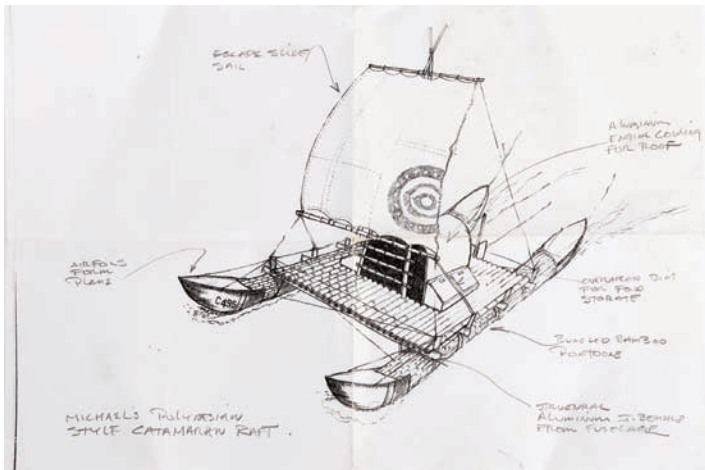 ESCAPE SLIDE
SAIL
ALUMINUM
ENGINE COWLING
FOR ROOF
AIRFOILS
FROM
PLANE
C495
FOR FOOD
STORAGE
BUNDLED BAMBOO
PONTOONS
STRUCTURAL
ALUMINUM I-BEAMS
FROM FUSELAGE
MICHAEL'S POLYNESIAN
STYLE CATAMARAN RAFT.